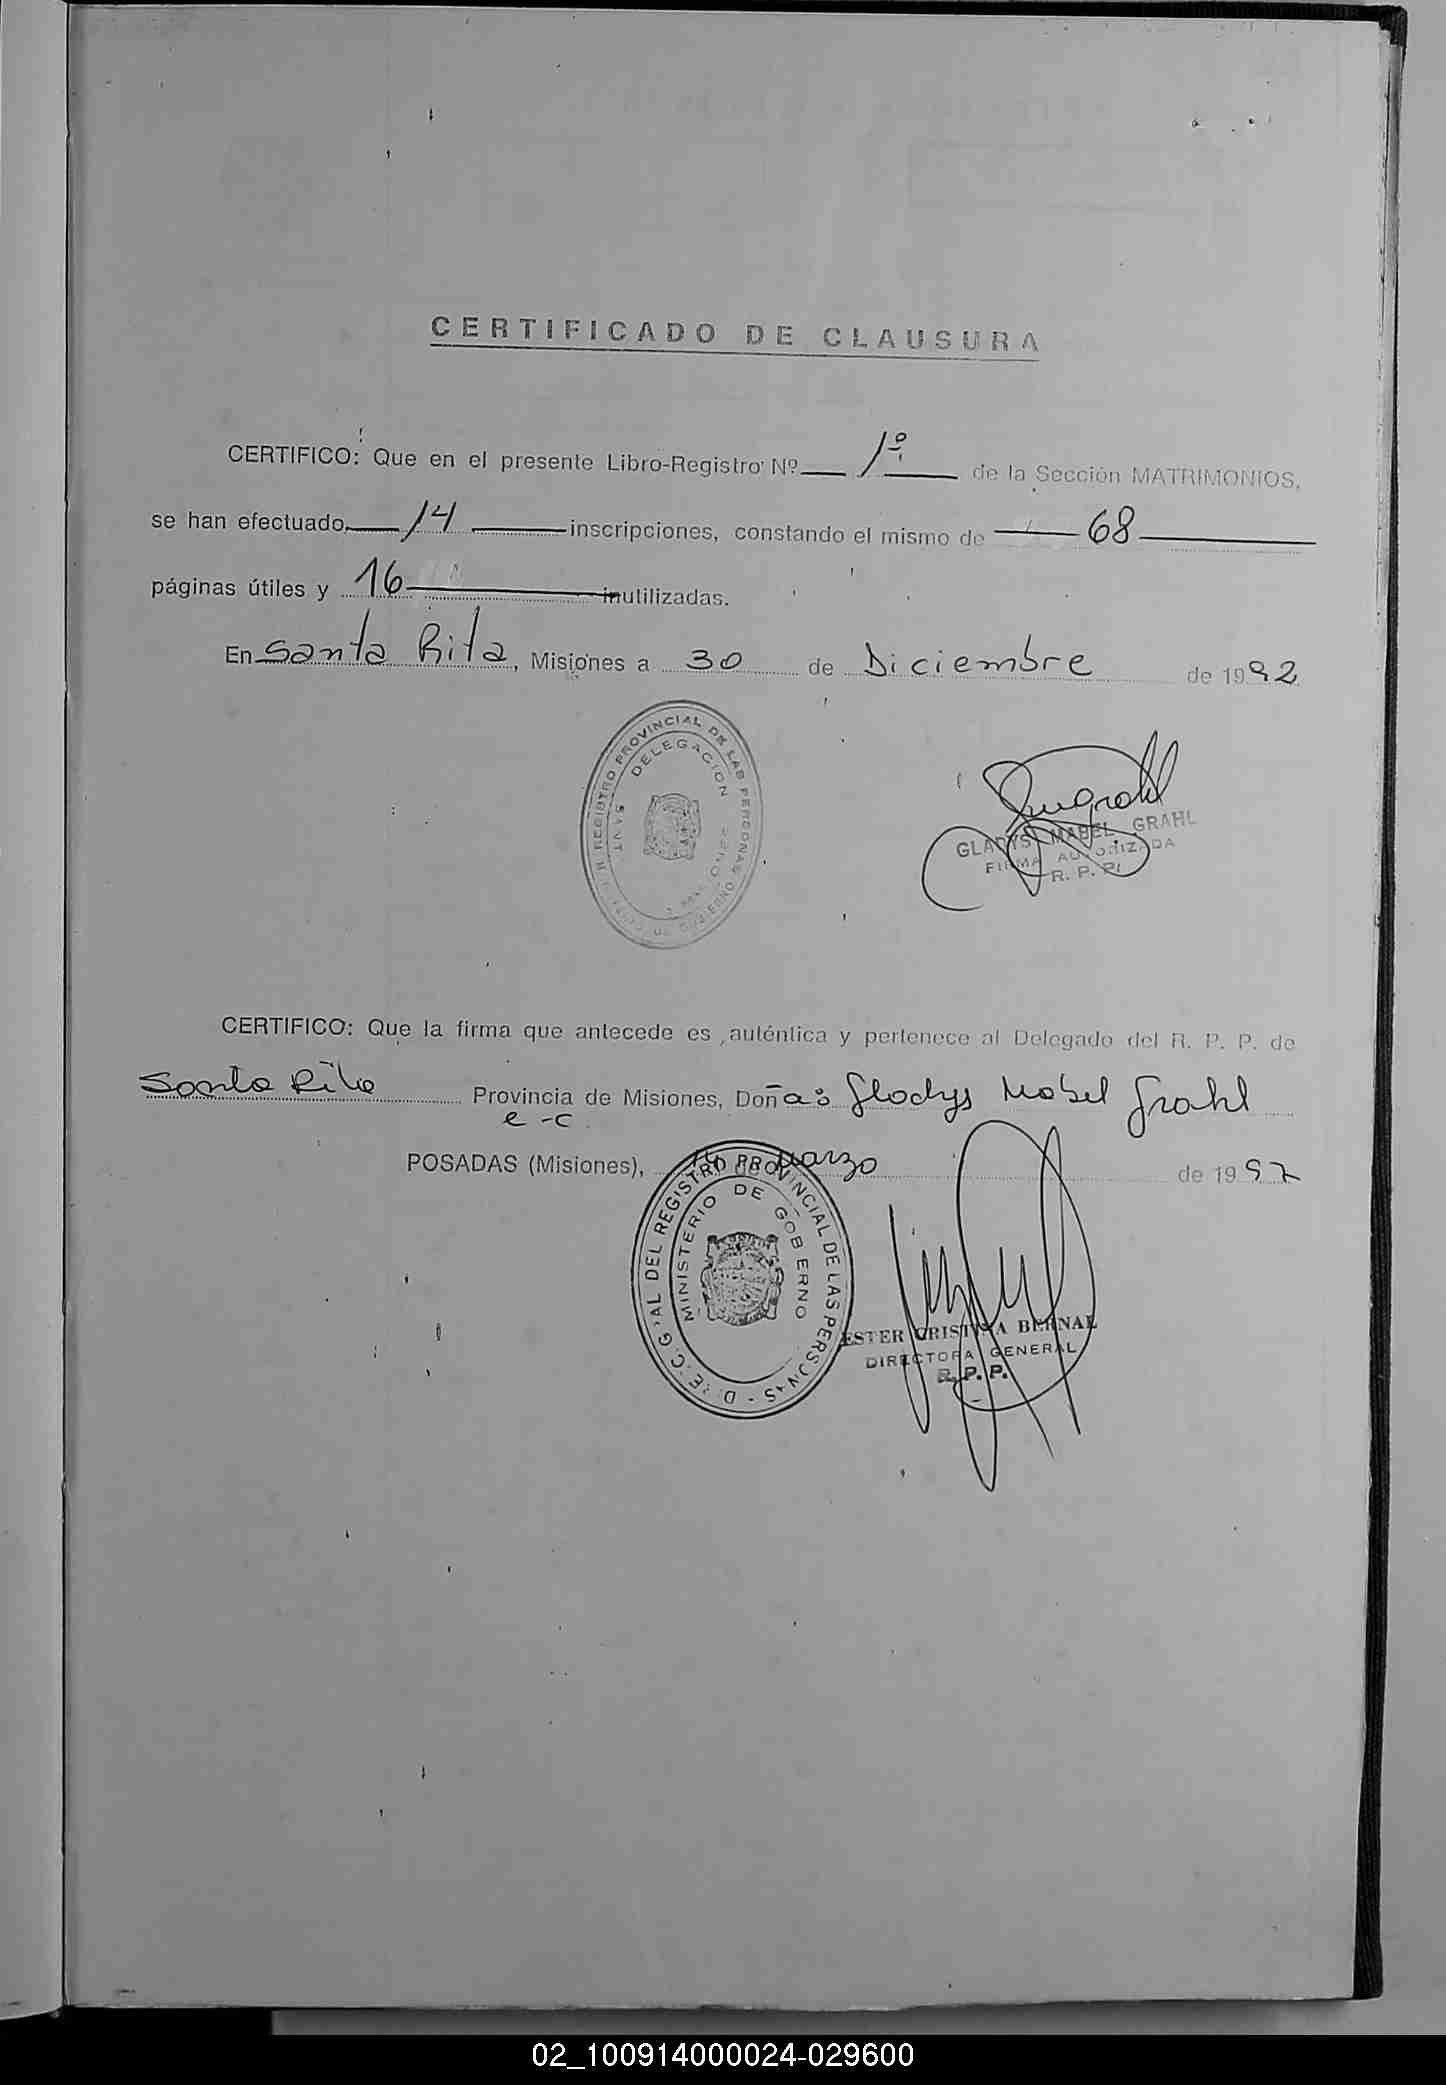 CERTIFICADO DE CLAUSURA
CERTIFICO: Que en el presente Libro-Registro Nº 1º de la Sección MATRIMONIOS,
se han efectuado 14 inscripciones, constando el mismo de 68
páginas útiles y 16 inutilizadas.
En Santa Rita, Misiones a 30 de Diciembre de 1992
REGISTRO PROVINCIAL DE LAS PERSONAS
DELEGACION
GLADYS MABEL GRAHL
FIRMA AUTORIZADA
R. P. P.
CERTIFICO: Que la firma que antecede es auténtica y pertenece al Delegado del R. P. P. de
Santa Rita Provincia de Misiones, Doña: Gladys Mabel Grahl
e-c
POSADAS (Misiones), Marzo de 1997
DEL REGISTRO PROVINCIAL DE LAS PERSONAS
MINISTERIO DE GOBIERNO
ESTER CRISTINA BERNAL
DIRECTORA GENERAL
R. P. P.
02_100914000024-029600